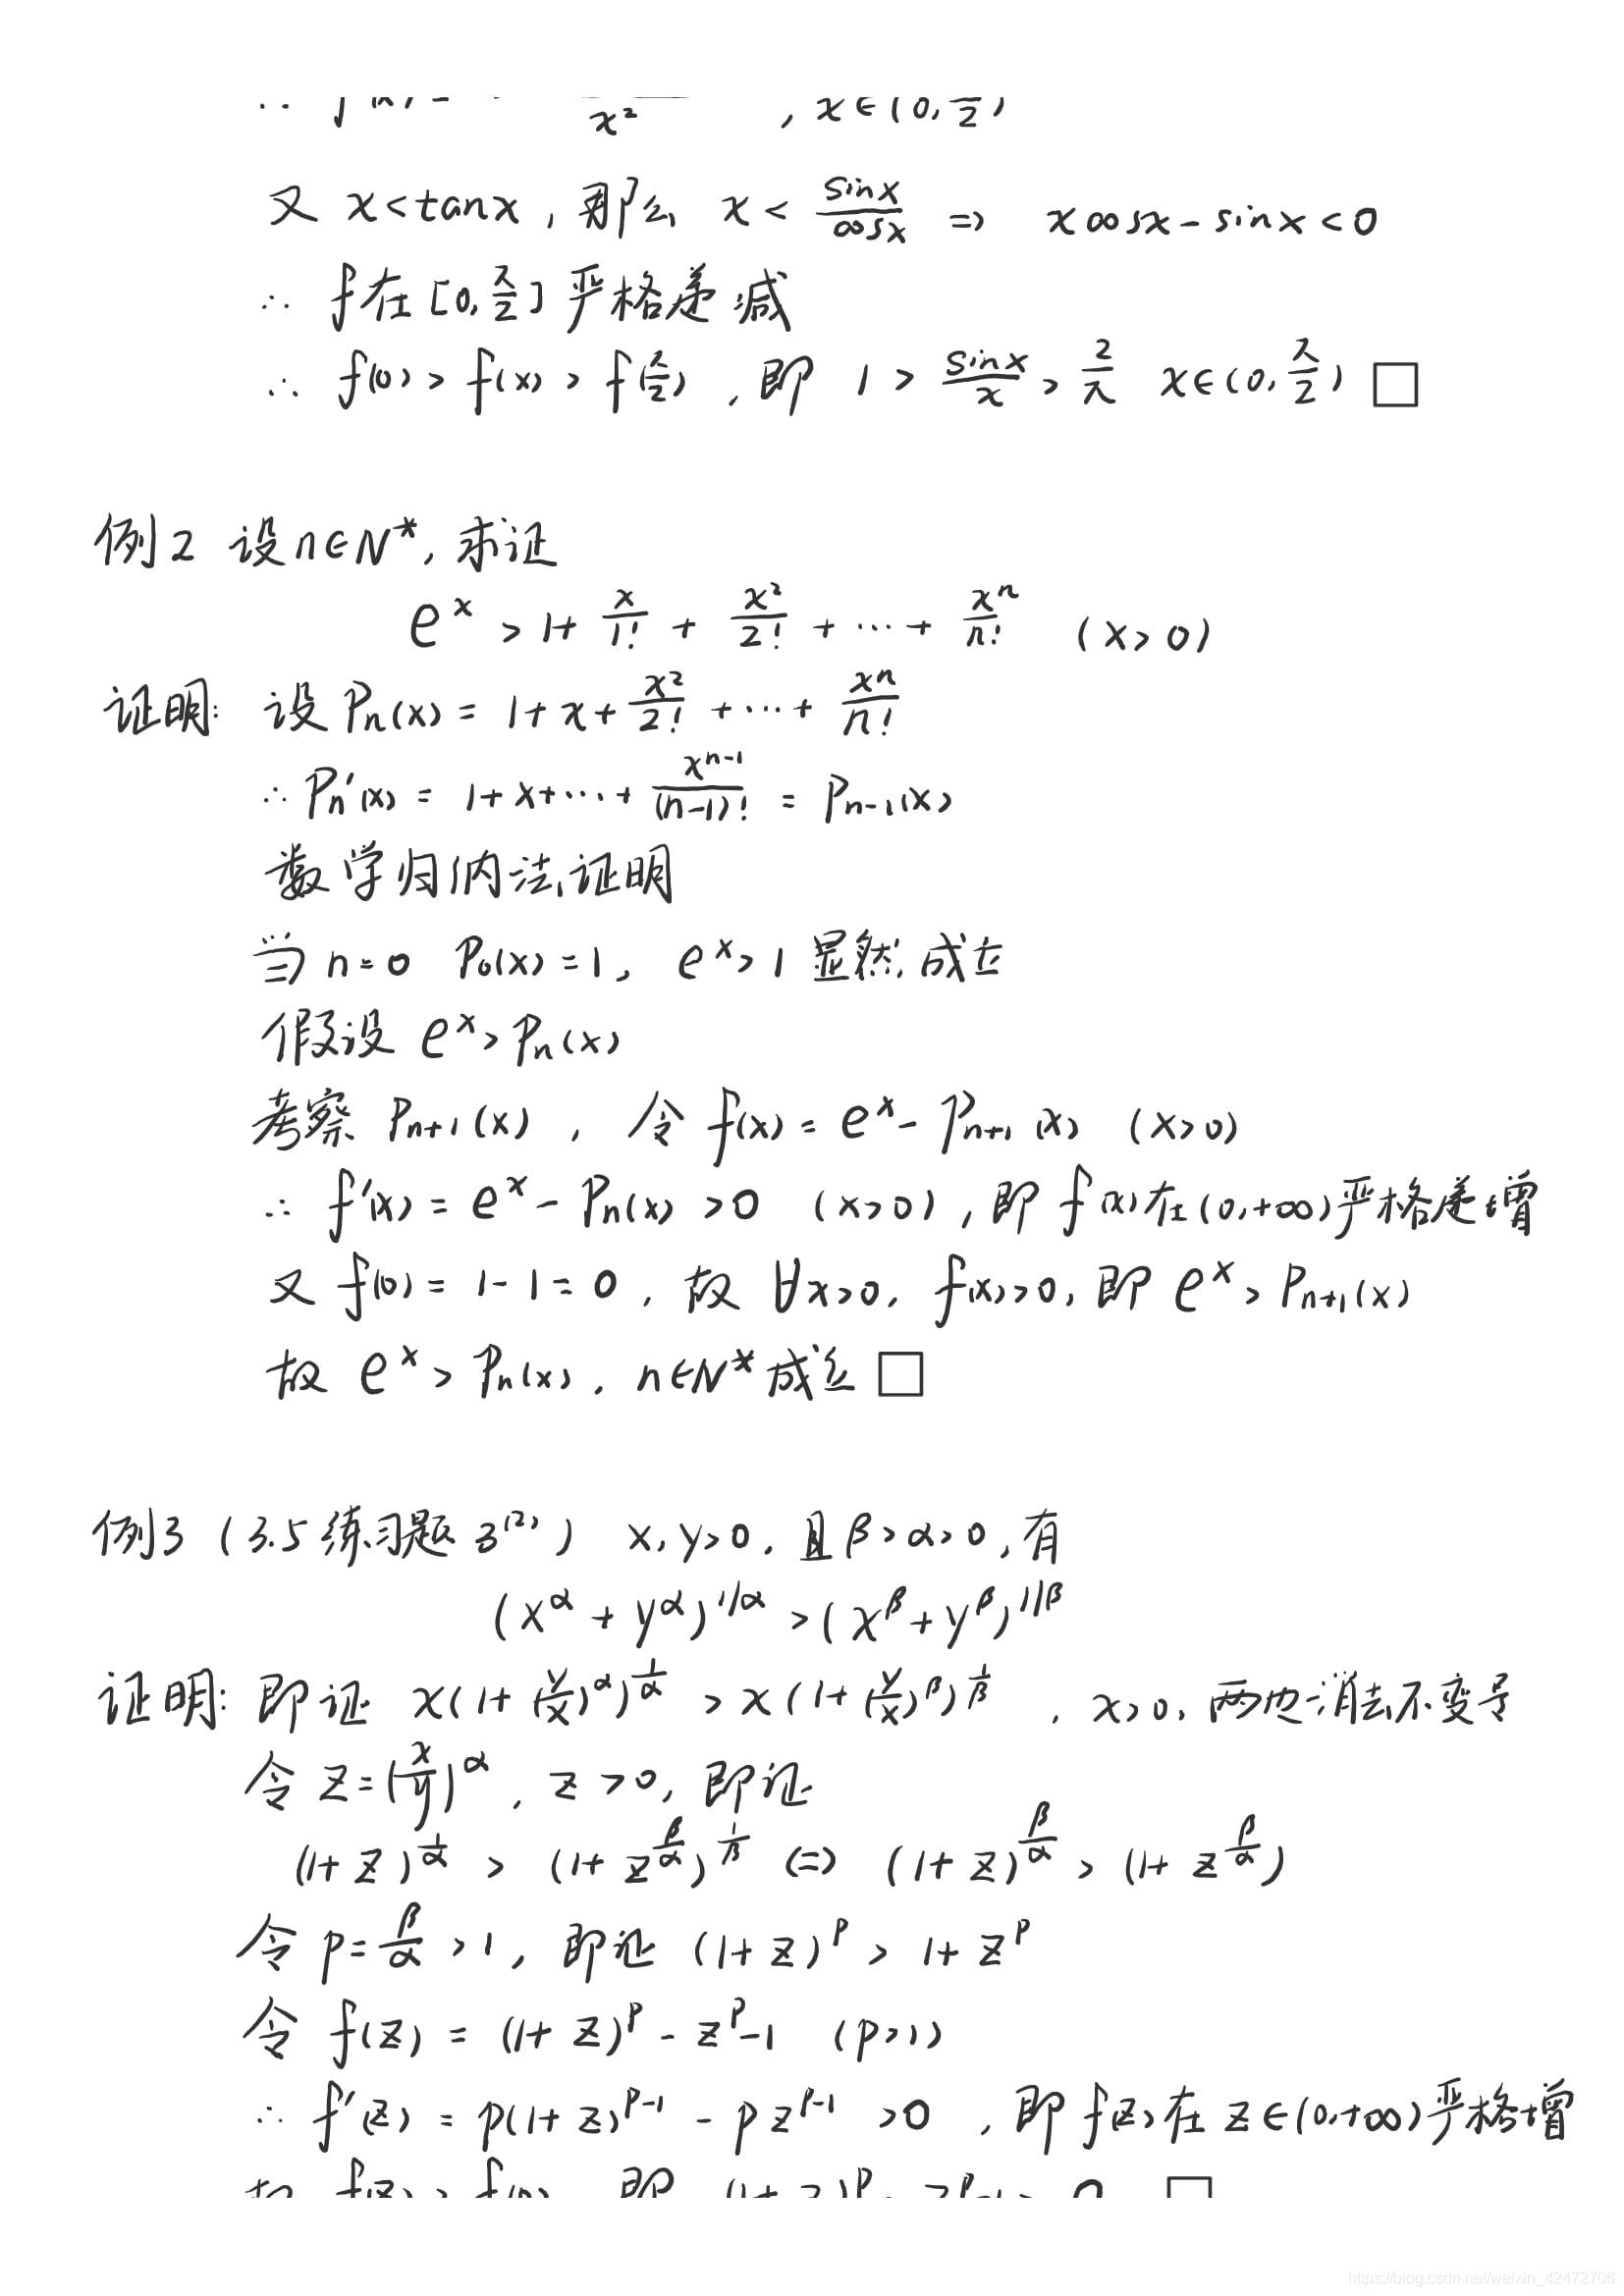 x² , x∈(0, π/2)
又 x<tanx , 那么 x < sinx/cosx ⇒ xcosx-sinx<0
∴ f在[0, π/2]严格递减
∴ f(0)>f(x)>f(π/2) , 即 1 > sinx/x > 2/π x∈(0, π/2) □
例2 设n∈N*, 求证
e^x > 1+ x/1! + x²/2! + ⋯ + x^n/n! (x>0)
证明: 设 Pn(x) = 1+x+ x²/2! +⋯+ x^n/n!
∴ Pn'(x) = 1+x+⋯+ x^(n-1)/(n-1)! = Pn-1(x)
数学归纳法证明
当n=0 P0(x)=1, e^x>1 显然成立
假设 e^x>Pn(x)
考察 Pn+1(x) , 令 f(x)=e^x-Pn+1(x) (x>0)
∴ f'(x) = e^x-Pn(x) >0 (x>0) , 即 f(x)在(0,+∞)严格递增
又 f(0) = 1-1=0 , 故 ∀x>0, f(x)>0, 即 e^x>Pn+1(x)
故 e^x>Pn(x), n∈N*成立 □
例3 (3.5 练习题 3(2)) x,y>0, 且β>α>0,有
(x^α + y^α)^(1/α) > (x^β + y^β)^(1/β)
证明: 即证 x(1+(y/x)^α)^(1/α) > x(1+(y/x)^β)^(1/β) , x>0, 两边消去不变号
令 z=(x/y)^α , z>0, 即证
(1+z)^(1/α) > (1+z^(β/α))^(1/β) ⇔ (1+z)^(β/α) > (1+z^(β/α))
令 p=β/α >1, 即证 (1+z)^p > 1+z^p
令 f(z) = (1+z)^p - z^p-1 (p>1)
∴ f'(z) = p(1+z)^(p-1) - pz^(p-1) >0 , 即 f(z)在 z∈(0,+∞)严格增
https://blog.csdn.net/weixin_42472706